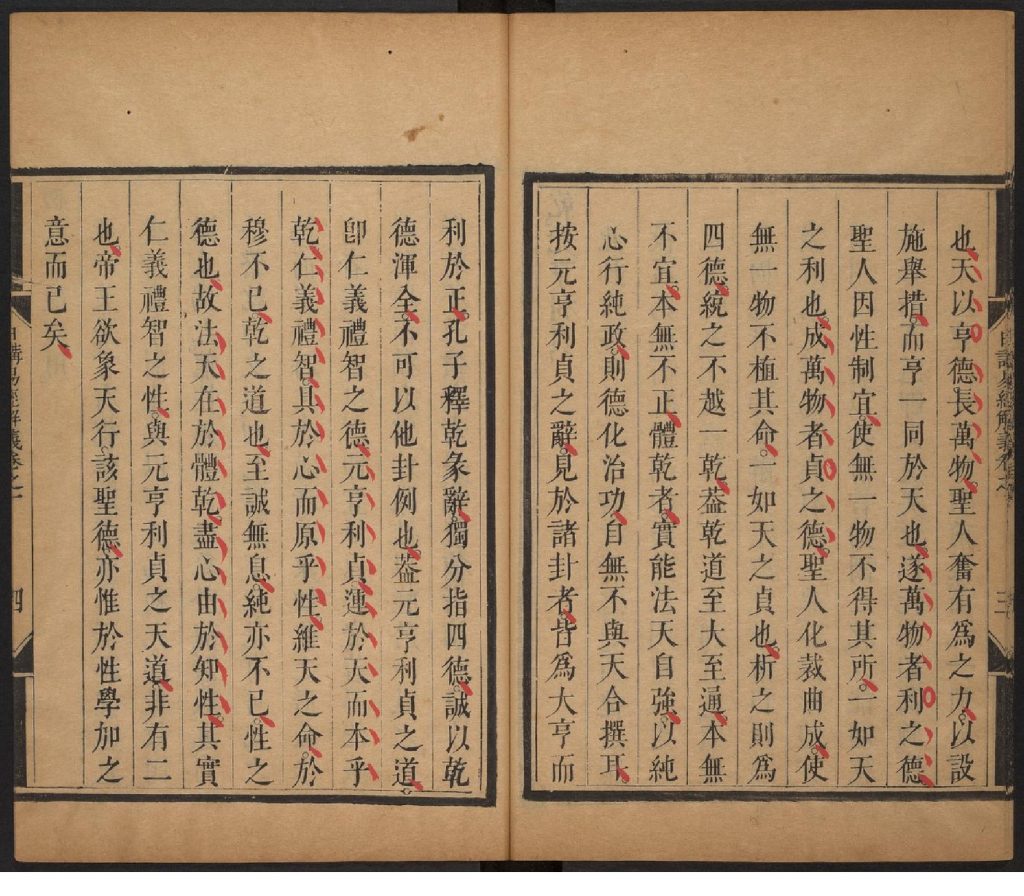 也天以亨德長萬物聖人奮有爲之力以設
施舉措而亨一同於天也遂萬物者利之德
聖人因性制宜使無一物不得其所一如天
之利也成萬物者貞之德聖人化裁曲成使
無一物不植其命一如天之貞也析之則爲
四德統之不越一乾葢乾道至大至通本無
不宜本無不正體乾者實能法天自強以純
心行純政則德化治功自無不與天合撰耳
按元亨利貞之辭見於諸卦者皆爲大亨而
日講易經解義卷之一 三
利於正孔子釋乾彖辭獨分指四德誠以乾
德渾全不可以他卦例也葢元亨利貞之道
卽仁義禮智之德元亨利貞運於天而本乎
乾仁義禮智具於心而原乎性維天之命於
穆不已乾之道也至誠無息純亦不已性之
德也故法天在於體乾盡心由於知性其實
仁義禮智之性與元亨利貞之天道非有二
也帝王欲象天行該聖德亦惟於性學加之
意而已矣
日講易經解義卷之一 四